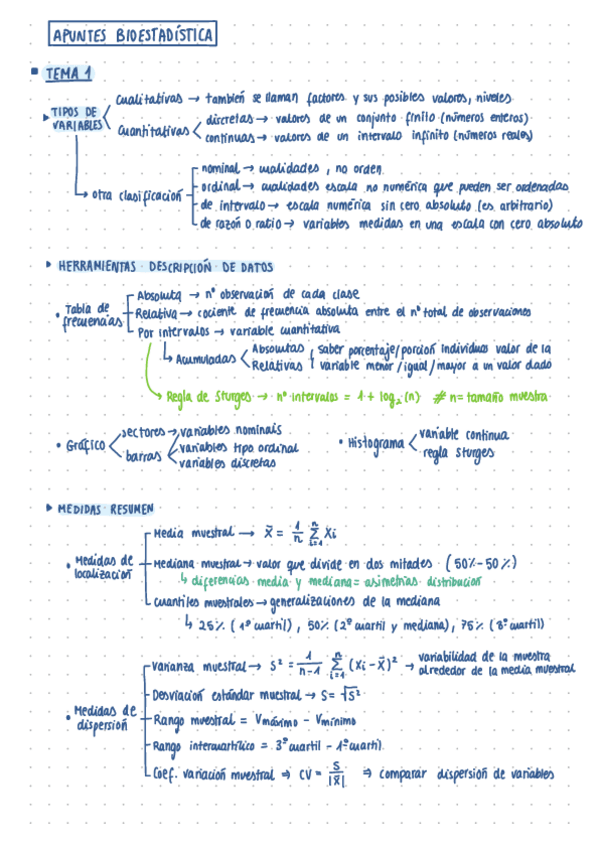 APUNTES BIOESTADÍSTICA
TEMA 1
TIPOS DE VARIABLES
Cualitativas → también se llaman factores y sus posibles valores, niveles
Cuantitativas
discretas → valores de un conjunto finito (números enteros)
continuas → valores de un intervalo infinito (números reales)
otra clasificación
nominal → cualidades, no orden
ordinal → cualidades escala no numérica que pueden ser ordenadas
de intervalo → escala numérica sin cero absoluto (es arbitrario)
de razón o ratio → variables medidas en una escala con cero absoluto
HERRAMIENTAS DESCRIPCIÓN DE DATOS
Tabla de frecuencias
Absoluta → nº observación de cada clase
Relativa → cociente de frecuencia absoluta entre el nº total de observaciones
Por intervalos → variable cuantitativa
Acumuladas
Absolutas
Relativas
saber porcentaje/porción individuos valor de la
variable menor/igual/mayor a un valor dado
Regla de Sturges → nº intervalos = 1 + log₂(n) # n = tamaño muestra
Gráfico
sectores → variables nominais
barras
variables tipo ordinal
variables discretas
Histograma
variable continua
regla Sturges
MEDIDAS RESUMEN
Medidas de localización
Media muestral → x̄ = 1/n Σ(i=1, n) xi
Mediana muestral → valor que divide en dos mitades (50%-50%)
↳ diferencias media y mediana = asimetrías distribución
cuantiles muestrales → generalizaciones de la mediana
↳ 25% (1º cuartil), 50% (2º cuartil y mediana), 75% (3º cuartil)
Medidas de dispersión
Varianza muestral → S² = 1/(n-1) Σ(i=1, n) (xi - x̄)² → variabilidad de la muestra
alrededor de la media muestral
Desviación estándar muestral → S = √S²
Rango muestral = Vmáximo - Vmínimo
Rango intercuartílico = 3º cuartil - 1º cuartil
Coef. variación muestral ⇒ CV = S/|x̄| ⇒ comparar dispersión de variables